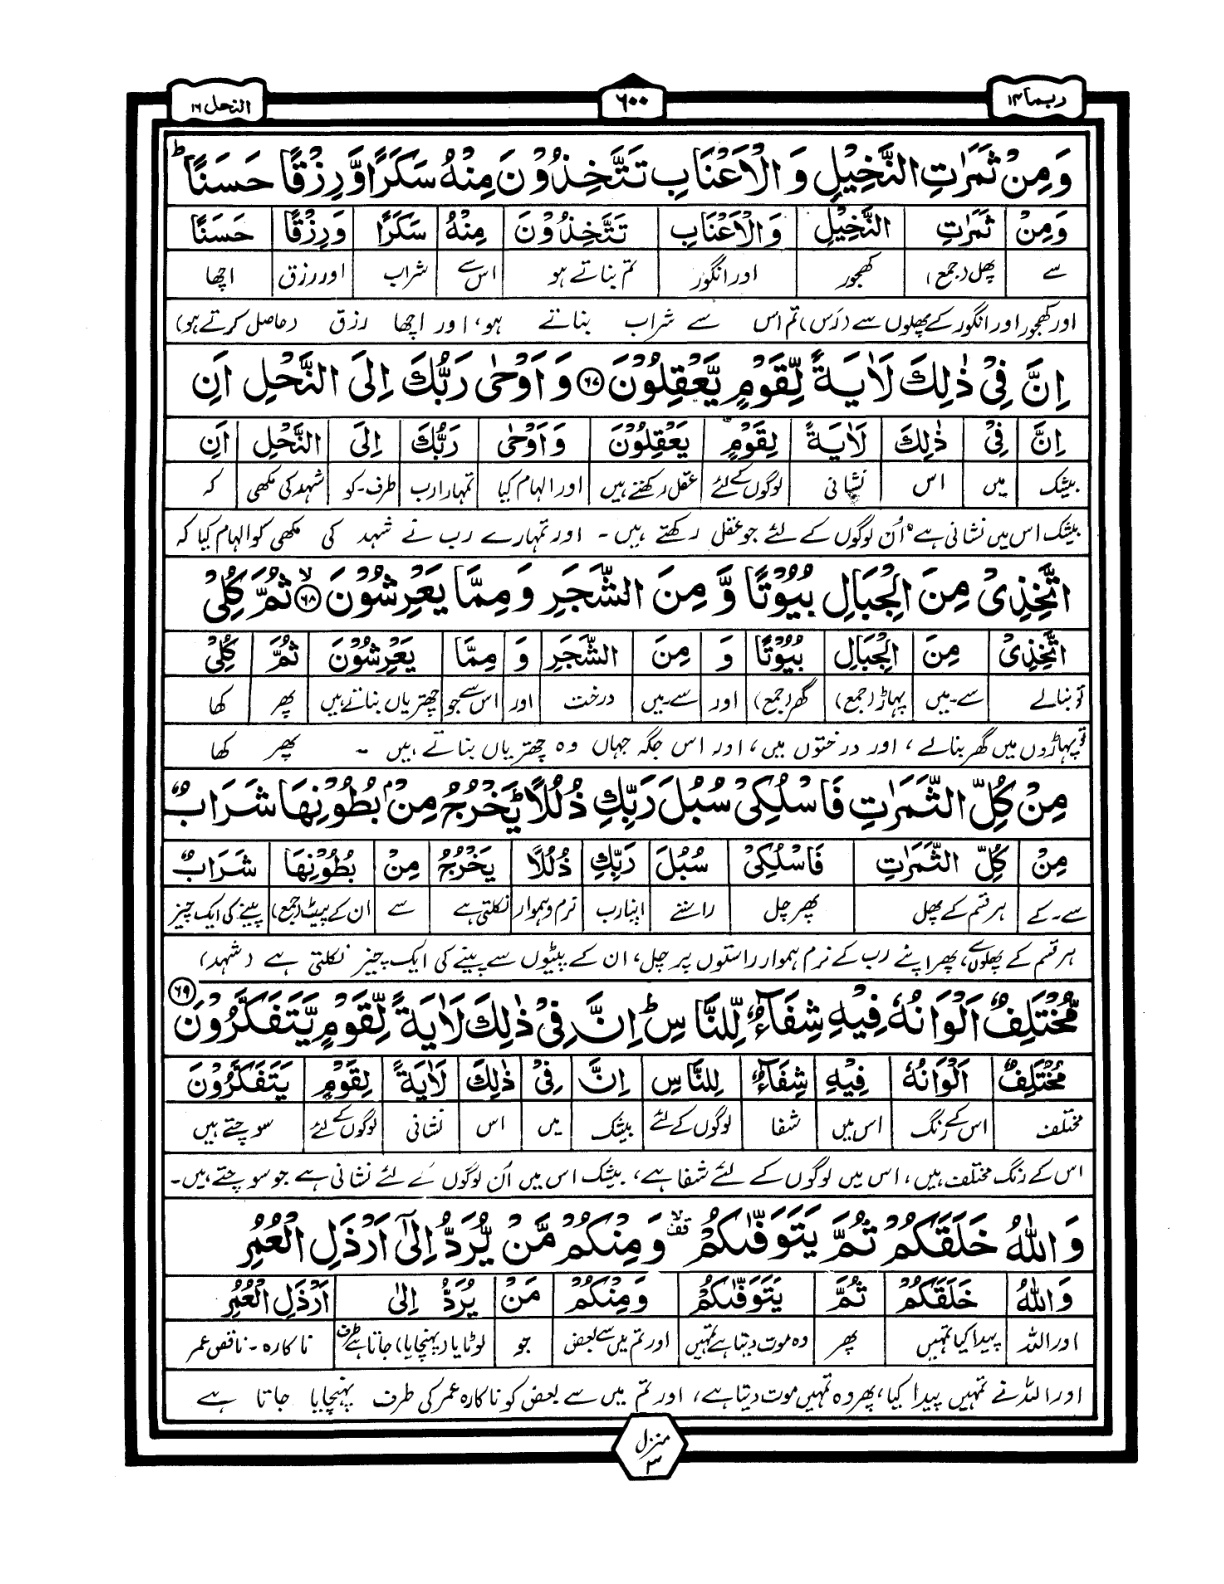 ربما ۱۴
۶۰۰
النحل ۱۶
وَمِنْ ثَمَرٰتِ النَّخِيْلِ وَالْاَعْنَابِ تَتَّخِذُوْنَ مِنْهُ سَكَرًا وَّرِزْقًا حَسَنًا ؕ
وَمِنْ ثَمَرٰتِ النَّخِيْلِ وَالْاَعْنَابِ تَتَّخِذُوْنَ مِنْهُ سَكَرًا وَرِزْقًا حَسَنًا
سے پھل (جمع) کھجور اور انگور تم بناتے ہو اس سے شراب اور رزق اچھا
اور کھجور اور انگور کے پھلوں سے (رَس) تم اس سے شراب بناتے ہو، اور اچھا رزق (حاصل کرتے ہو)
اِنَّ فِيْ ذٰلِكَ لَاٰيَةً لِّقَوْمٍ يَّعْقِلُوْنَ ۶۷ وَاَوْحٰى رَبُّكَ اِلَى النَّحْلِ اَنِ
اِنَّ فِيْ ذٰلِكَ لَاٰيَةً لِقَوْمٍ يَعْقِلُوْنَ وَاَوْحٰى رَبُّكَ اِلَى النَّحْلِ اَنِ
بیشک میں اس نشانی لوگوں کے لئے عقل رکھتے ہیں اور الہام کیا تمہارا رب طرف۔کو شہد کی مکھی کہ
بیشک اس میں نشانی ہے اُن لوگوں کے لئے جو عقل رکھتے ہیں ۔ اور تمہارے رب نے شہد کی مکھی کو الہام کیا کہ
اتَّخِذِيْ مِنَ الْجِبَالِ بُيُوْتًا وَّمِنَ الشَّجَرِ وَمِمَّا يَعْرِشُوْنَ ۙ ۶۸ ثُمَّ كُلِيْ
اتَّخِذِيْ مِنَ الْجِبَالِ بُيُوْتًا وَ مِنَ الشَّجَرِ وَ مِمَّا يَعْرِشُوْنَ ثُمَّ كُلِيْ
تو بنا لے سے۔میں پہاڑ (جمع) گھر (جمع) اور سے۔میں درخت اور اس سے جو چھتریاں بناتے ہیں پھر کھا
تو پہاڑوں میں گھر بنا لے، اور درختوں میں، اور اس جگہ جہاں وہ چھتریاں بناتے ہیں ۔ پھر کھا
مِنْ كُلِّ الثَّمَرٰتِ فَاسْلُكِيْ سُبُلَ رَبِّكِ ذُلُلًا ؕ يَخْرُجُ مِنْۢ بُطُوْنِهَا شَرَابٌ
مِنْ كُلِّ الثَّمَرٰتِ فَاسْلُكِيْ سُبُلَ رَبِّكِ ذُلُلًا يَخْرُجُ مِنْ بُطُوْنِهَا شَرَابٌ
سے۔کے ہر قسم کے پھل پھر چل راستے اپنا رب نرم و ہموار نکلتی ہے سے ان کے پیٹ (جمع) پینے کی ایک چیز
ہر قسم کے پھلوں، پھر اپنے رب کے نرم ہموار راستوں پر چل، ان کے پیٹوں سے پینے کی ایک چیز نکلتی ہے (شہد)
مُّخْتَلِفٌ اَلْوَانُهٗ فِيْهِ شِفَآءٌ لِّلنَّاسِ ؕ اِنَّ فِيْ ذٰلِكَ لَاٰيَةً لِّقَوْمٍ يَّتَفَكَّرُوْنَ ۶۹
مُخْتَلِفٌ اَلْوَانُهٗ فِيْهِ شِفَآءٌ لِلنَّاسِ اِنَّ فِيْ ذٰلِكَ لَاٰيَةً لِقَوْمٍ يَتَفَكَّرُوْنَ
مختلف اس کے رنگ اس میں شفا لوگوں کے لئے بیشک میں اس نشانی لوگوں کے لئے سوچتے ہیں
اس کے رنگ مختلف ہیں، اس میں لوگوں کے لئے شفا ہے، بیشک اس میں اُن لوگوں کے لئے نشانی ہے جو سوچتے ہیں۔
وَاللّٰهُ خَلَقَكُمْ ثُمَّ يَتَوَفّٰىكُمْ ۙ قف وَمِنْكُمْ مَّنْ يُّرَدُّ اِلٰٓى اَرْذَلِ الْعُمُرِ
وَاللّٰهُ خَلَقَكُمْ ثُمَّ يَتَوَفّٰىكُمْ وَمِنْكُمْ مَنْ يُرَدُّ اِلٰى اَرْذَلِ الْعُمُرِ
اور اللہ پیدا کیا تمہیں پھر وہ موت دیتا ہے تمہیں اور تم میں سے بعض جو لوٹایا (پہنچایا) جاتا ہے طرف ناکارہ۔ناقص عمر
اور اللہ نے تمہیں پیدا کیا، پھر وہ تمہیں موت دیتا ہے، اور تم میں سے بعض کو ناکارہ عمر کی طرف پہنچایا جاتا ہے
منزل ۳